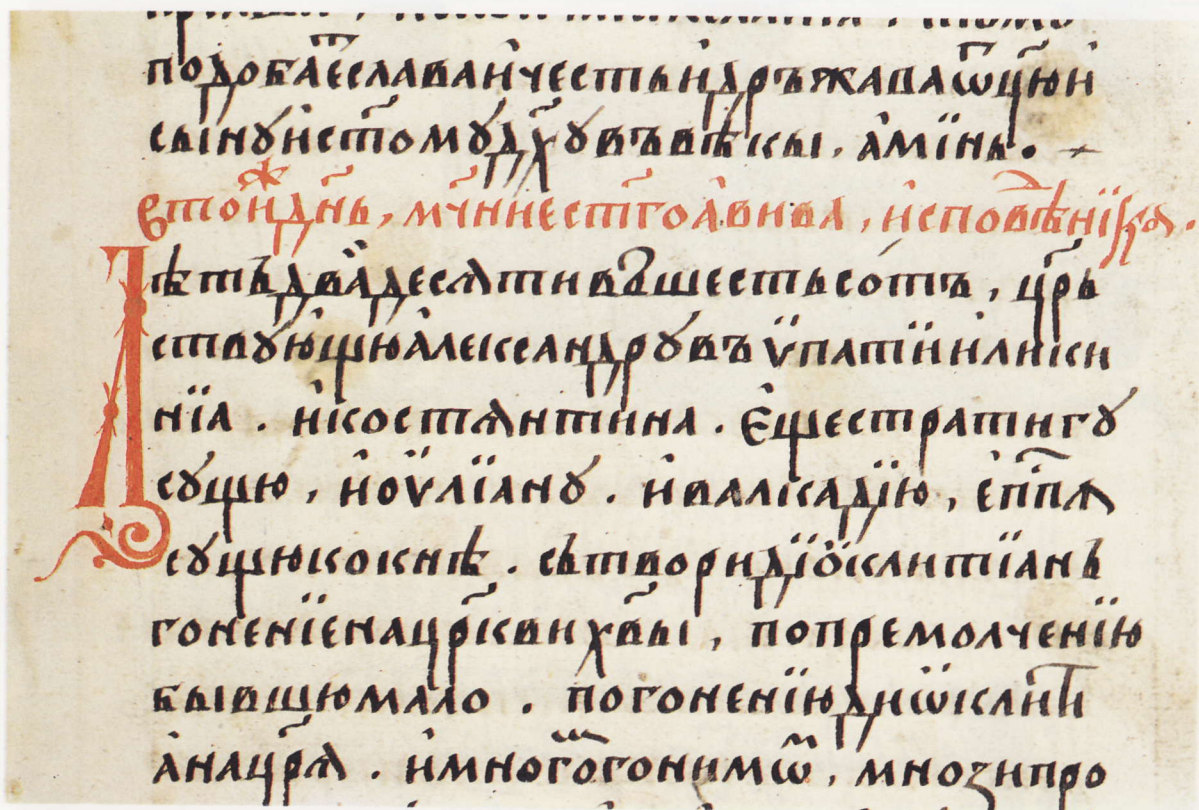 подобаеⷮславаичестьидръжаваѿц҃юи
сынуист҃омудх҃увъвѣкы. аминь.
втоиⷤдн҃ь, мч҃ниест҃гоавива, исповѣⷣника.
Лѣтъдвадесятивꙋшестьсотъ, цр҃ь
ствующюалександрувъѵпатиилики
нїа. икостянтина. єщестратигу
сущю, иоѵлїану. ивалкадїю, еп҃пя
сущюкокнѣ. сътворидїоклитїанъ
гоненїенацр҃квих҃вы, попремолченїю
бывшюмало. погоненїюдиѡклитї
анацр҃я. имногогонимѡⷨ, мнозипро